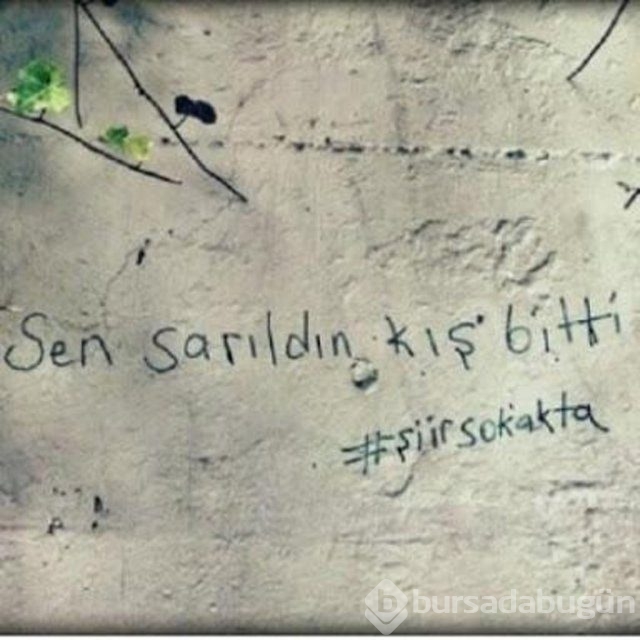 Sen sarıldın kış bitti
#şiirsokakta
bursadabugün